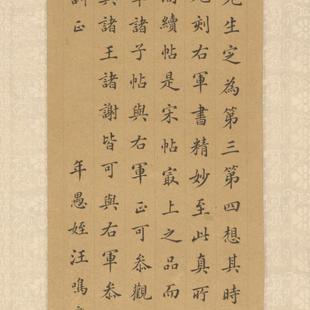 先生定為第三第四想其時
刻右軍書精妙至此真所
續帖是宋帖冣上之品而
諸子帖與右軍正可叅觀
諸王諸謝皆可與右軍叅
正
年愚姪汪鳴